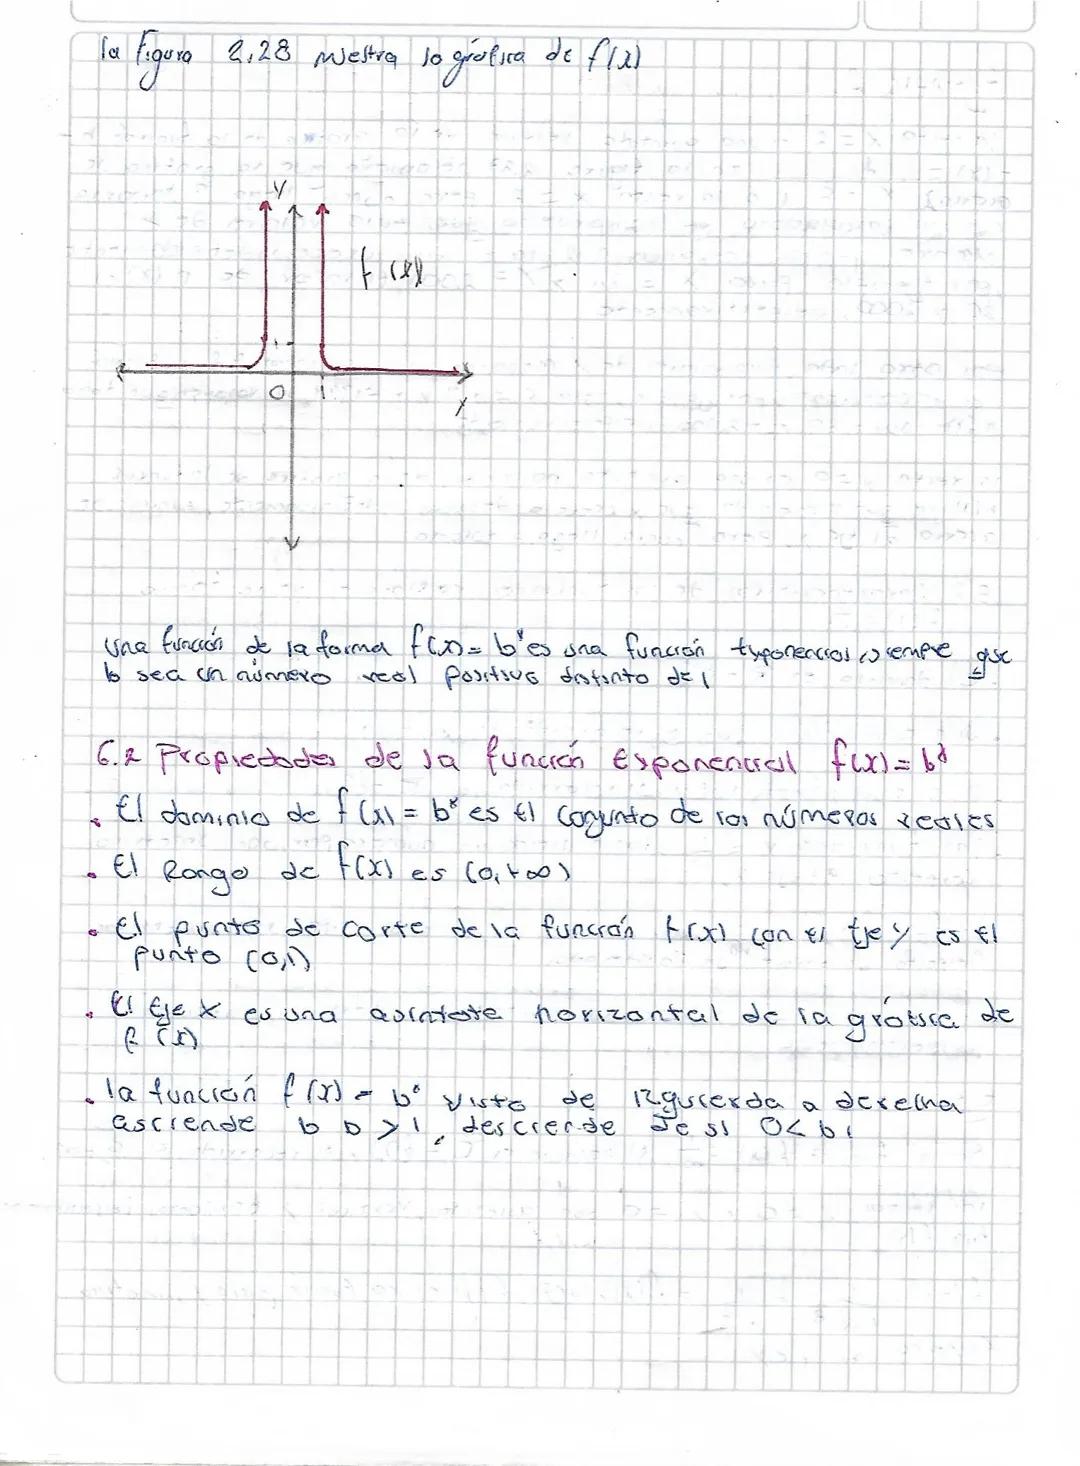 la figura 2,28 muestra la gráfica de f(x)
y
f (x)
0 1
x
una función de la forma f(x) = bˣ es una función exponencial siempre que
b sea un número real positivo distinto de 1
6.2 Propiedades de la función Exponencial f(x) = bˣ
• El dominio de f(x) = bˣ es el conjunto de los números reales
• El Rango de f(x) es (0, +∞)
• El punto de corte de la función f(x) con el eje y es el
punto (0,1)
• El Eje x es una asíntota horizontal de la gráfica de
f (x)
• la función f(x) = bˣ vista de izquierda a derecha
asciende b b > 1, desciende de si 0 < b 1